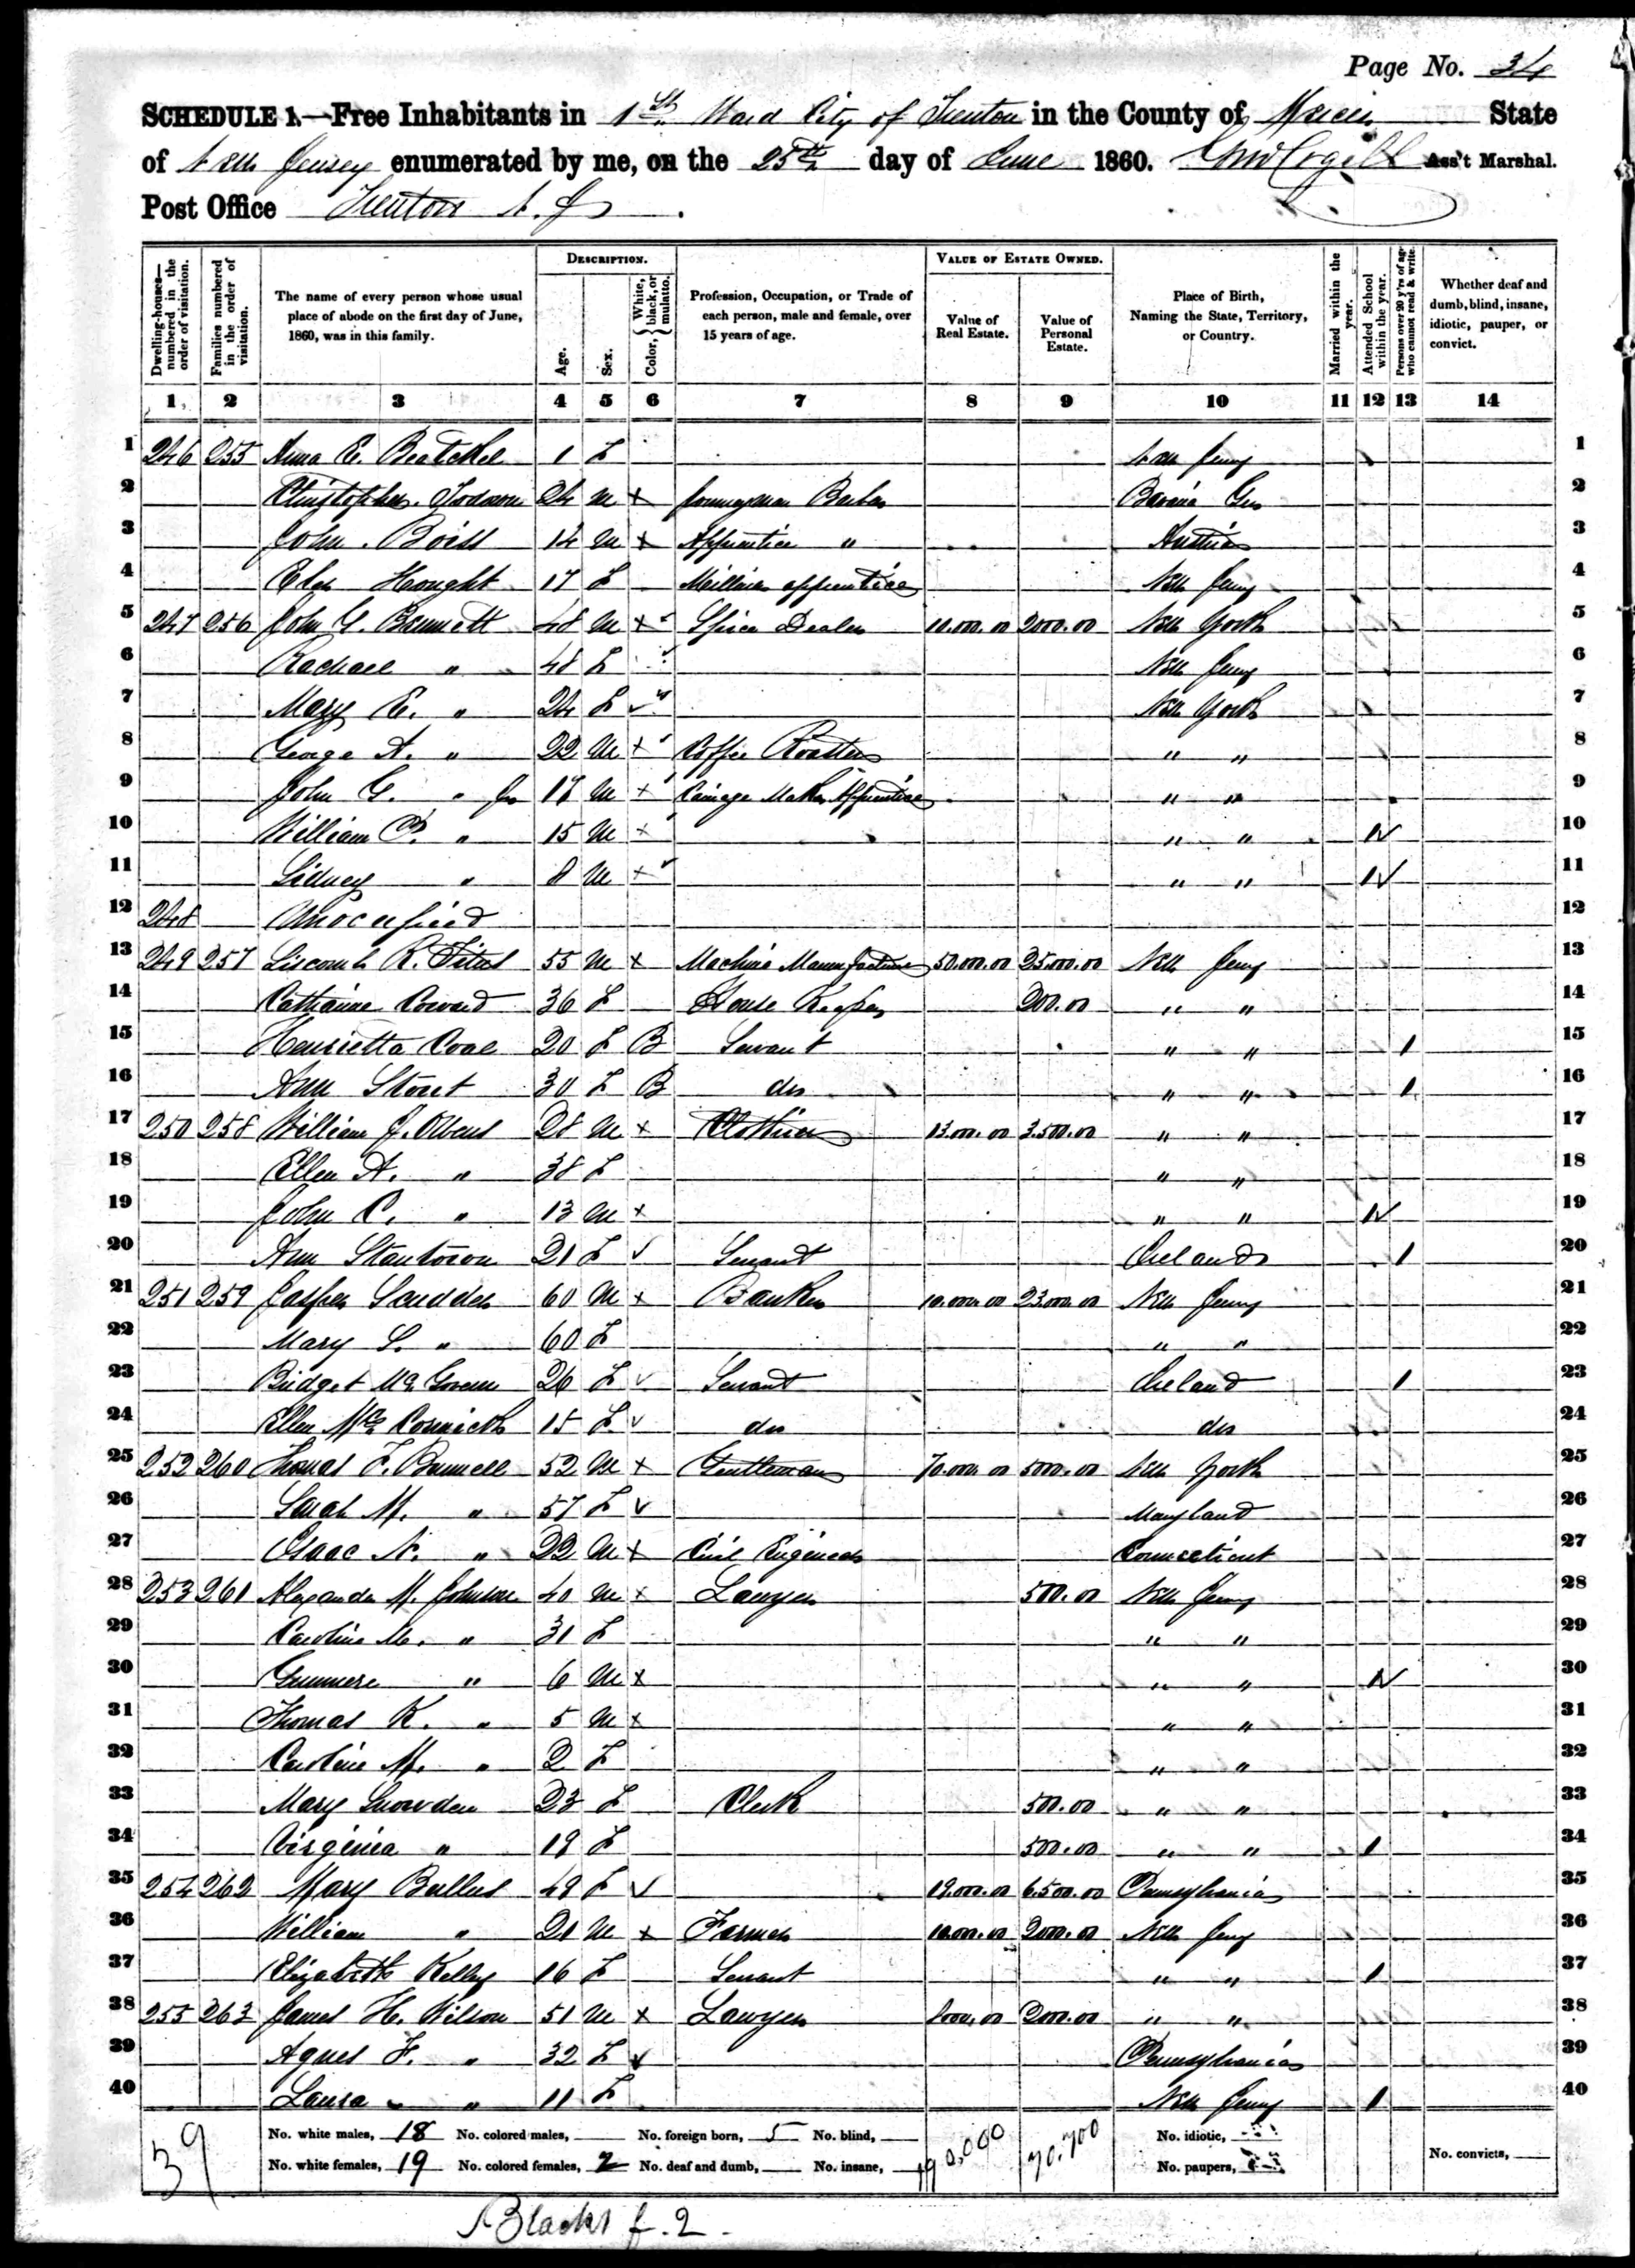 Page No. 34
SCHEDULE 1.—Free Inhabitants in 1st Ward City of Trenton in the County of Mercer State
of New Jersey enumerated by me, on the 25th day of June 1860. Ass't Marshal.
Post Office Trenton N. J.
DESCRIPTION. VALUE OF ESTATE OWNED.
Dwelling-houses—numbered in the order of visitation. Families numbered in the order of visitation. The name of every person whose usual place of abode on the first day of June, 1860, was in this family. Age. Sex. Color, { White, black, or mulatto. Profession, Occupation, or Trade of each person, male and female, over 15 years of age. Value of Real Estate. Value of Personal Estate. Place of Birth, Naming the State, Territory, or Country. Married within the year. Attended School within the year. Persons over 20 y'rs of age who cannot read & write. Whether deaf and dumb, blind, insane, idiotic, pauper, or convict.
1 2 3 4 5 6 7 8 9 10 11 12 13 14
1 246 255 Anna E. 1 F New Jersey 1
2 Christopher 24 M x Journeyman Barber Bavaria Ger 2
3 John 14 M x Apprentice " Austria 3
4 Hought 17 F Milliner apprentice New Jersey 4
5 247 256 John G. Bennett 48 M x Spice Dealer 10.000.00 2000.00 New York 5
6 Rachael " 48 F New Jersey 6
7 Mary E. " 24 F New York 7
8 George A. " 22 M x Coffee Roaster " " 8
9 John G. " Jr 17 M x Carriage Maker Apprentice " " 9
10 William P. " 15 M x " " 10
11 Sidney " 8 M x " " 11
12 248 Unoccupied 12
13 249 257 Liscomb R. Titus 55 M x Machine Manufacturer 50.000.00 25.000.00 New Jersey 13
14 Catharine Coward 36 F House Keeper 200.00 " " 14
15 Henrietta Coal 20 F B Servant " " 1 15
16 Ann Stout 30 F B do " " 1 16
17 250 258 William J. Owens 28 M x Clothier 13.000.00 3.500.00 " " 17
18 Ellen A. " 38 F " " 18
19 John C. " 13 M x " " 19
20 Ann 21 F Servant Ireland 1 20
21 251 259 Jasper Scudder 60 M x Banker 10.000.00 23.000.00 New Jersey 21
22 Mary S. " 60 F " " 22
23 Bridget McGovern 26 F Servant Ireland 1 23
24 Ellen McCormick 15 F do do 24
25 252 260 Thomas F. 52 M x Gentleman 70.000.00 5000.00 New York 25
26 Sarah M. " 57 F Maryland 26
27 Isaac N. " 22 M x Civil Engineer Connecticut 27
28 253 261 Alexander M. Johnson 40 M x Lawyer 500.00 New Jersey 28
29 Caroline M. " 31 F " " 29
30 " 6 M x " " 30
31 Thomas K. " 5 M x " " 31
32 Caroline M. " 2 F " " 32
33 Mary Snowden 23 F Clerk 500.00 " " 33
34 Virginia " 19 F 500.00 " " 1 34
35 254 262 Mary Bullus 49 F 19.000.00 6.500.00 Pennsylvania 35
36 William " 21 M x Farmer 10.000.00 2000.00 New Jersey 36
37 Elizabeth Kelley 16 F Servant " " 1 37
38 255 263 James H. Wilson 51 M x Lawyer 8000.00 2000.00 " " 38
39 Agnes F. " 32 F Pennsylvania 39
40 Laura " 11 F New Jersey 1 40
39 No. white males, 18 No. colored males, No. foreign born, 5 No. blind, 190,000 70,700 No. idiotic,
No. white females, 19 No. colored females, 2 No. deaf and dumb, No. insane, No. paupers, No. convicts,
Blacks f. 2.